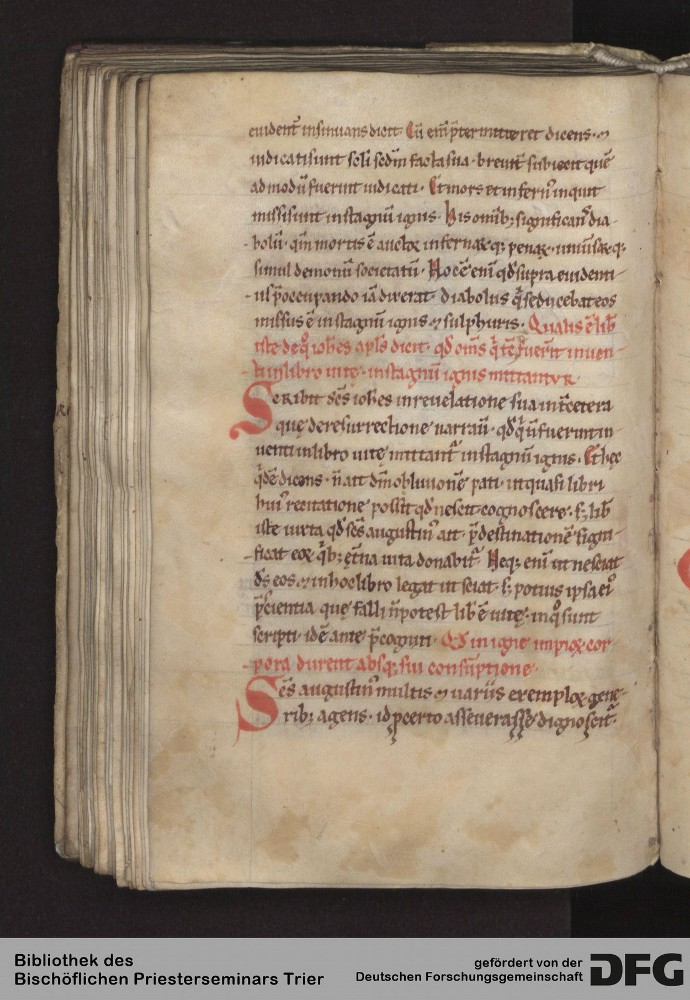 euident̄ insinuans dicit. Cū em̄ p̄termitteret dicens. ⁊
iudicati sunt soli sedm̄ facta sua. breuit̄ subiecit quē
ad modū fuerint iudicati. Et mors et infern᷒ inquit
missi sunt in stagnū ignis. His omib; significans dia-
bolū. qm̄ mortis ē auctor infernarꝗ; penarꝝ. uniūsarꝗ;
simul demonū societatū. Hoc ē enī qd̄ supra euidenti-
us p̄occupando iā dixerat. diabolus q̄ seducebat eos
missus ē in stagnū ignis ⁊ sulphuris. Qualis ē lib̄
iste de q̊ ioh̄es apl̄s dicit. qd̄ om̄s q̄ in eo n̄ fuerit inuen-
ti in libro uitę. in stagnū ignis mittantur.
Scribit sc̄s ioh̄es in reuelatione sua int̄ cetera
quę de resurrectione narrauī. qd̄ q̄ n̄ fuerint in-
uenti in libro uitę mittant᷑ in stagnū ignis. Et hęc
q̄dē dicens. n̄ ait dm̄ obliuionē pati. ut quasi libri
hui᷒ recitatione possit qd̄ nescit cognoscere. s; lib̄
iste iuxta qd̄ sc̄s augustin᷒ ait p̄destinationē signi-
ficat eoꝝ q̄b; ęt̄na uita donabit᷑. Neq; enī ut nesciat
ds̄ eos ⁊ in hoc libro legat ut sciat. s; potius ipsa ei᷒
p̄scientia quę falli n̄ potest lib̄ ē uitę. in q̊ sunt
scripti. id ē ante p̄cogniti. Qd̄ in igne impioꝝ cor-
pora durent absq; sui consūptione.
Sc̄s augustin᷒ multis ⁊ uariis exemploꝝ gene-
rib; agens. id ꝓcerto asseuerasse dignoscit᷑.
Bibliothek des
Bischöflichen Priesterseminars Trier
gefördert von der
Deutschen Forschungsgemeinschaft
DFG